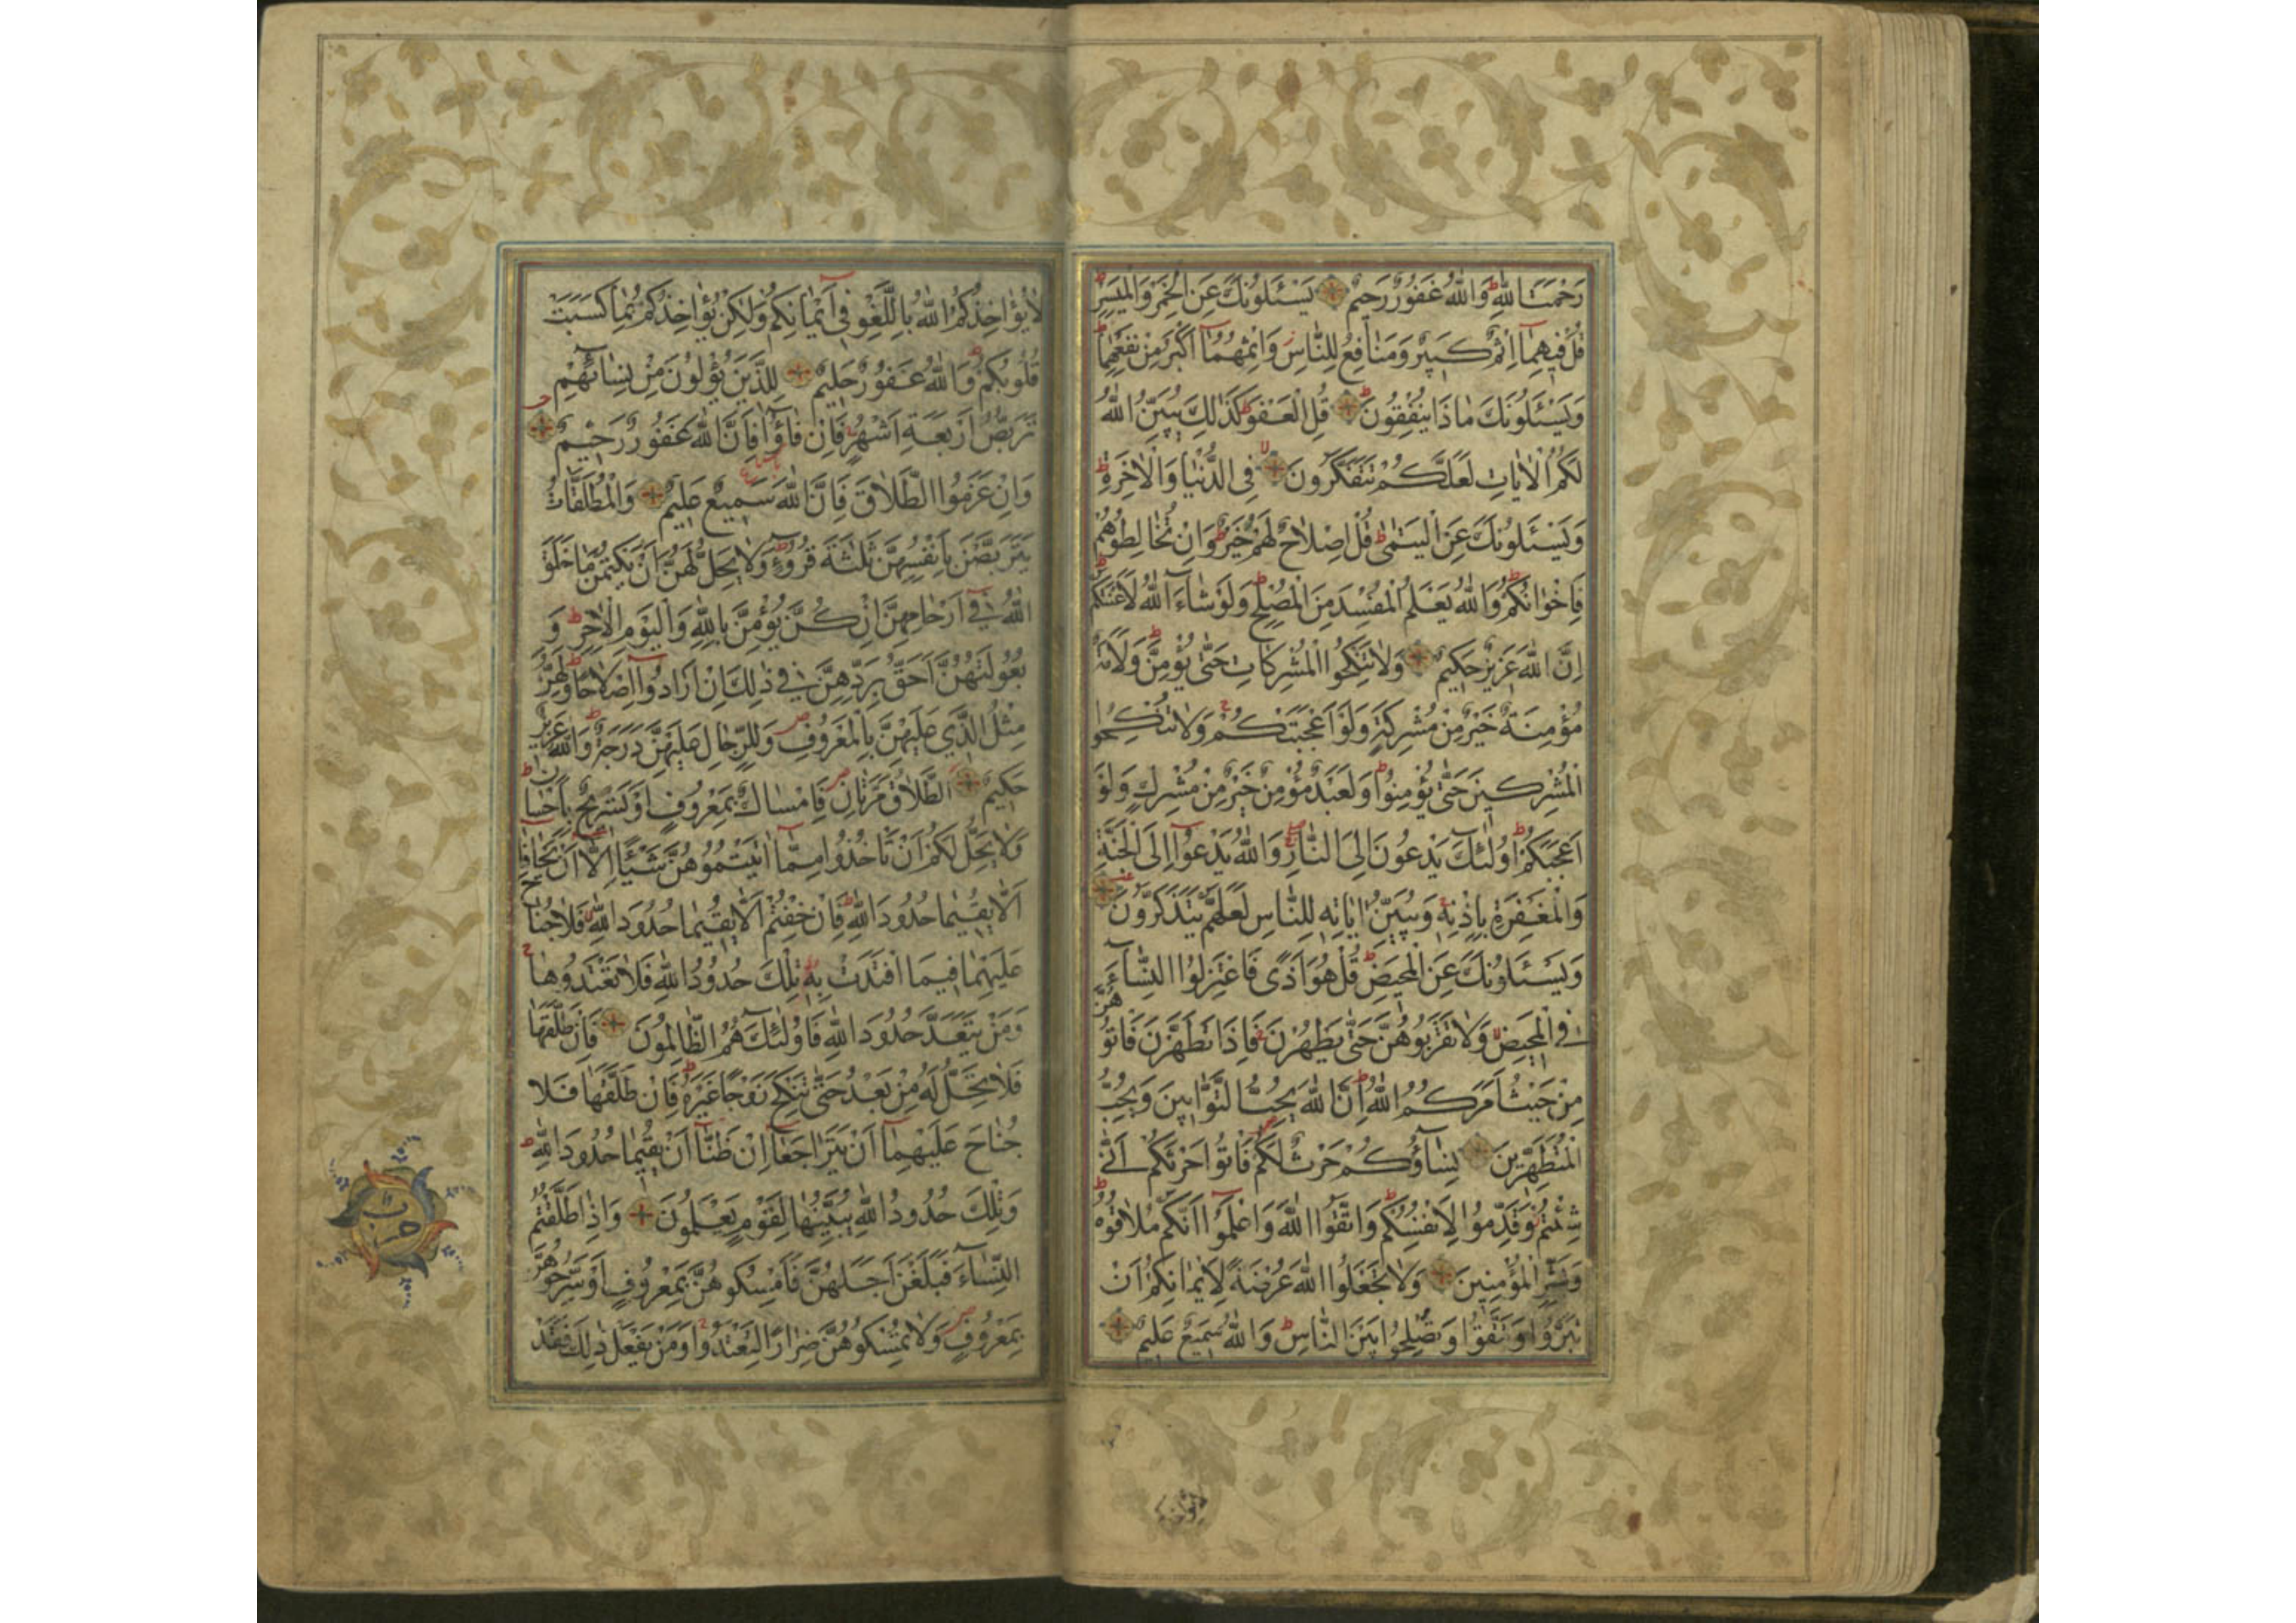 رَحْمَتَ اللّٰهِ ط وَاللّٰهُ غَفُورٌ رَحِيمٌ يَسْـَٔلُونَكَ عَنِ الْخَمْرِ وَالْمَيْسِرِ ط
قُلْ فِيهِمَآ اِثْمٌ كَبِيرٌ وَمَنَافِعُ لِلنَّاسِ ز وَاِثْمُهُمَآ اَكْبَرُ مِنْ نَفْعِهِمَا ط
وَيَسْـَٔلُونَكَ مَاذَا يُنْفِقُونَ ط قُلِ الْعَفْوَ ط كَذٰلِكَ يُبَيِّنُ اللّٰهُ
لَكُمُ الْاٰيَاتِ لَعَلَّكُمْ تَتَفَكَّرُونَ لا فِى الدُّنْيَا وَالْاٰخِرَةِ ط
وَيَسْـَٔلُونَكَ عَنِ الْيَتٰمٰى ط قُلْ اِصْلَاحٌ لَهُمْ خَيْرٌ ط وَاِنْ تُخَالِطُوهُمْ
فَاِخْوَانُكُمْ ط وَاللّٰهُ يَعْلَمُ الْمُفْسِدَ مِنَ الْمُصْلِحِ ط وَلَوْ شَآءَ اللّٰهُ لَاَعْنَتَكُمْ ط
اِنَّ اللّٰهَ عَزِيزٌ حَكِيمٌ وَلَا تَنْكِحُوا الْمُشْرِكَاتِ حَتّٰى يُؤْمِنَّ ط وَلَاَمَةٌ
مُؤْمِنَةٌ خَيْرٌ مِنْ مُشْرِكَةٍ وَلَوْ اَعْجَبَتْكُمْ ج وَلَا تُنْكِحُوا
الْمُشْرِكِينَ حَتّٰى يُؤْمِنُوا ط وَلَعَبْدٌ مُؤْمِنٌ خَيْرٌ مِنْ مُشْرِكٍ وَلَوْ
اَعْجَبَكُمْ ط اُولٰٓئِكَ يَدْعُونَ اِلَى النَّارِ وَاللّٰهُ يَدْعُوٓا اِلَى الْجَنَّةِ
وَالْمَغْفِرَةِ بِاِذْنِهِ ج وَيُبَيِّنُ اٰيَاتِهِ لِلنَّاسِ لَعَلَّهُمْ يَتَذَكَّرُونَ
وَيَسْـَٔلُونَكَ عَنِ الْمَحِيضِ ط قُلْ هُوَ اَذًى فَاعْتَزِلُوا النِّسَآءَ
فِى الْمَحِيضِ وَلَا تَقْرَبُوهُنَّ حَتّٰى يَطْهُرْنَ ج فَاِذَا تَطَهَّرْنَ فَاْتُوهُنَّ
مِنْ حَيْثُ اَمَرَكُمُ اللّٰهُ ط اِنَّ اللّٰهَ يُحِبُّ التَّوَّابِينَ وَيُحِبُّ
الْمُتَطَهِّرِينَ نِسَآؤُكُمْ حَرْثٌ لَكُمْ ص فَاْتُوا حَرْثَكُمْ اَنّٰى
شِئْتُمْ ز وَقَدِّمُوا لِاَنْفُسِكُمْ ط وَاتَّقُوا اللّٰهَ وَاعْلَمُوٓا اَنَّكُمْ مُلَاقُوهُ ط
وَبَشِّرِ الْمُؤْمِنِينَ وَلَا تَجْعَلُوا اللّٰهَ عُرْضَةً لِاَيْمَانِكُمْ اَنْ
تَبَرُّوا وَتَتَّقُوا وَتُصْلِحُوا بَيْنَ النَّاسِ ط وَاللّٰهُ سَمِيعٌ عَلِيمٌ
لَا يُؤَاخِذُكُمُ اللّٰهُ بِاللَّغْوِ فِىٓ اَيْمَانِكُمْ وَلٰكِنْ يُؤَاخِذُكُمْ بِمَا كَسَبَتْ
قُلُوبُكُمْ ط وَاللّٰهُ غَفُورٌ حَلِيمٌ لِلَّذِينَ يُؤْلُونَ مِنْ نِسَآئِهِمْ
تَرَبُّصُ اَرْبَعَةِ اَشْهُرٍ ج فَاِنْ فَآؤُا فَاِنَّ اللّٰهَ غَفُورٌ رَحِيمٌ
وَاِنْ عَزَمُوا الطَّلَاقَ فَاِنَّ اللّٰهَ سَمِيعٌ عَلِيمٌ وَالْمُطَلَّقَاتُ
يَتَرَبَّصْنَ بِاَنْفُسِهِنَّ ثَلٰثَةَ قُرُوٓءٍ ط وَلَا يَحِلُّ لَهُنَّ اَنْ يَكْتُمْنَ مَا خَلَقَ
اللّٰهُ فِىٓ اَرْحَامِهِنَّ اِنْ كُنَّ يُؤْمِنَّ بِاللّٰهِ وَالْيَوْمِ الْاٰخِرِ ط وَ
بُعُولَتُهُنَّ اَحَقُّ بِرَدِّهِنَّ فِى ذٰلِكَ اِنْ اَرَادُوٓا اِصْلَاحًا ط وَلَهُنَّ
مِثْلُ الَّذِى عَلَيْهِنَّ بِالْمَعْرُوفِ ص وَلِلرِّجَالِ عَلَيْهِنَّ دَرَجَةٌ ط وَاللّٰهُ عَزِيزٌ
حَكِيمٌ اَلطَّلَاقُ مَرَّتَانِ ص فَاِمْسَاكٌ بِمَعْرُوفٍ اَوْ تَسْرِيحٌ بِاِحْسَانٍ ط
وَلَا يَحِلُّ لَكُمْ اَنْ تَاْخُذُوا مِمَّآ اٰتَيْتُمُوهُنَّ شَيْـًٔا اِلَّآ اَنْ يَخَافَآ
اَلَّا يُقِيمَا حُدُودَ اللّٰهِ ط فَاِنْ خِفْتُمْ اَلَّا يُقِيمَا حُدُودَ اللّٰهِ لا فَلَا جُنَاحَ
عَلَيْهِمَا فِيمَا افْتَدَتْ بِهِ ط تِلْكَ حُدُودُ اللّٰهِ فَلَا تَعْتَدُوهَا ج
وَمَنْ يَتَعَدَّ حُدُودَ اللّٰهِ فَاُولٰٓئِكَ هُمُ الظَّالِمُونَ فَاِنْ طَلَّقَهَا
فَلَا تَحِلُّ لَهُ مِنْ بَعْدُ حَتّٰى تَنْكِحَ زَوْجًا غَيْرَهُ ط فَاِنْ طَلَّقَهَا فَلَا
جُنَاحَ عَلَيْهِمَآ اَنْ يَتَرَاجَعَآ اِنْ ظَنَّآ اَنْ يُقِيمَا حُدُودَ اللّٰهِ ط
وَتِلْكَ حُدُودُ اللّٰهِ يُبَيِّنُهَا لِقَوْمٍ يَعْلَمُونَ وَاِذَا طَلَّقْتُمُ
النِّسَآءَ فَبَلَغْنَ اَجَلَهُنَّ فَاَمْسِكُوهُنَّ بِمَعْرُوفٍ اَوْ سَرِّحُوهُنَّ
بِمَعْرُوفٍ ص وَلَا تُمْسِكُوهُنَّ ضِرَارًا لِتَعْتَدُوا ج وَمَنْ يَفْعَلْ ذٰلِكَ فَقَدْ